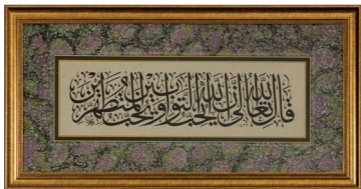 قال الله تعالى إن الله يحب التوابين ويحب المتطهرين